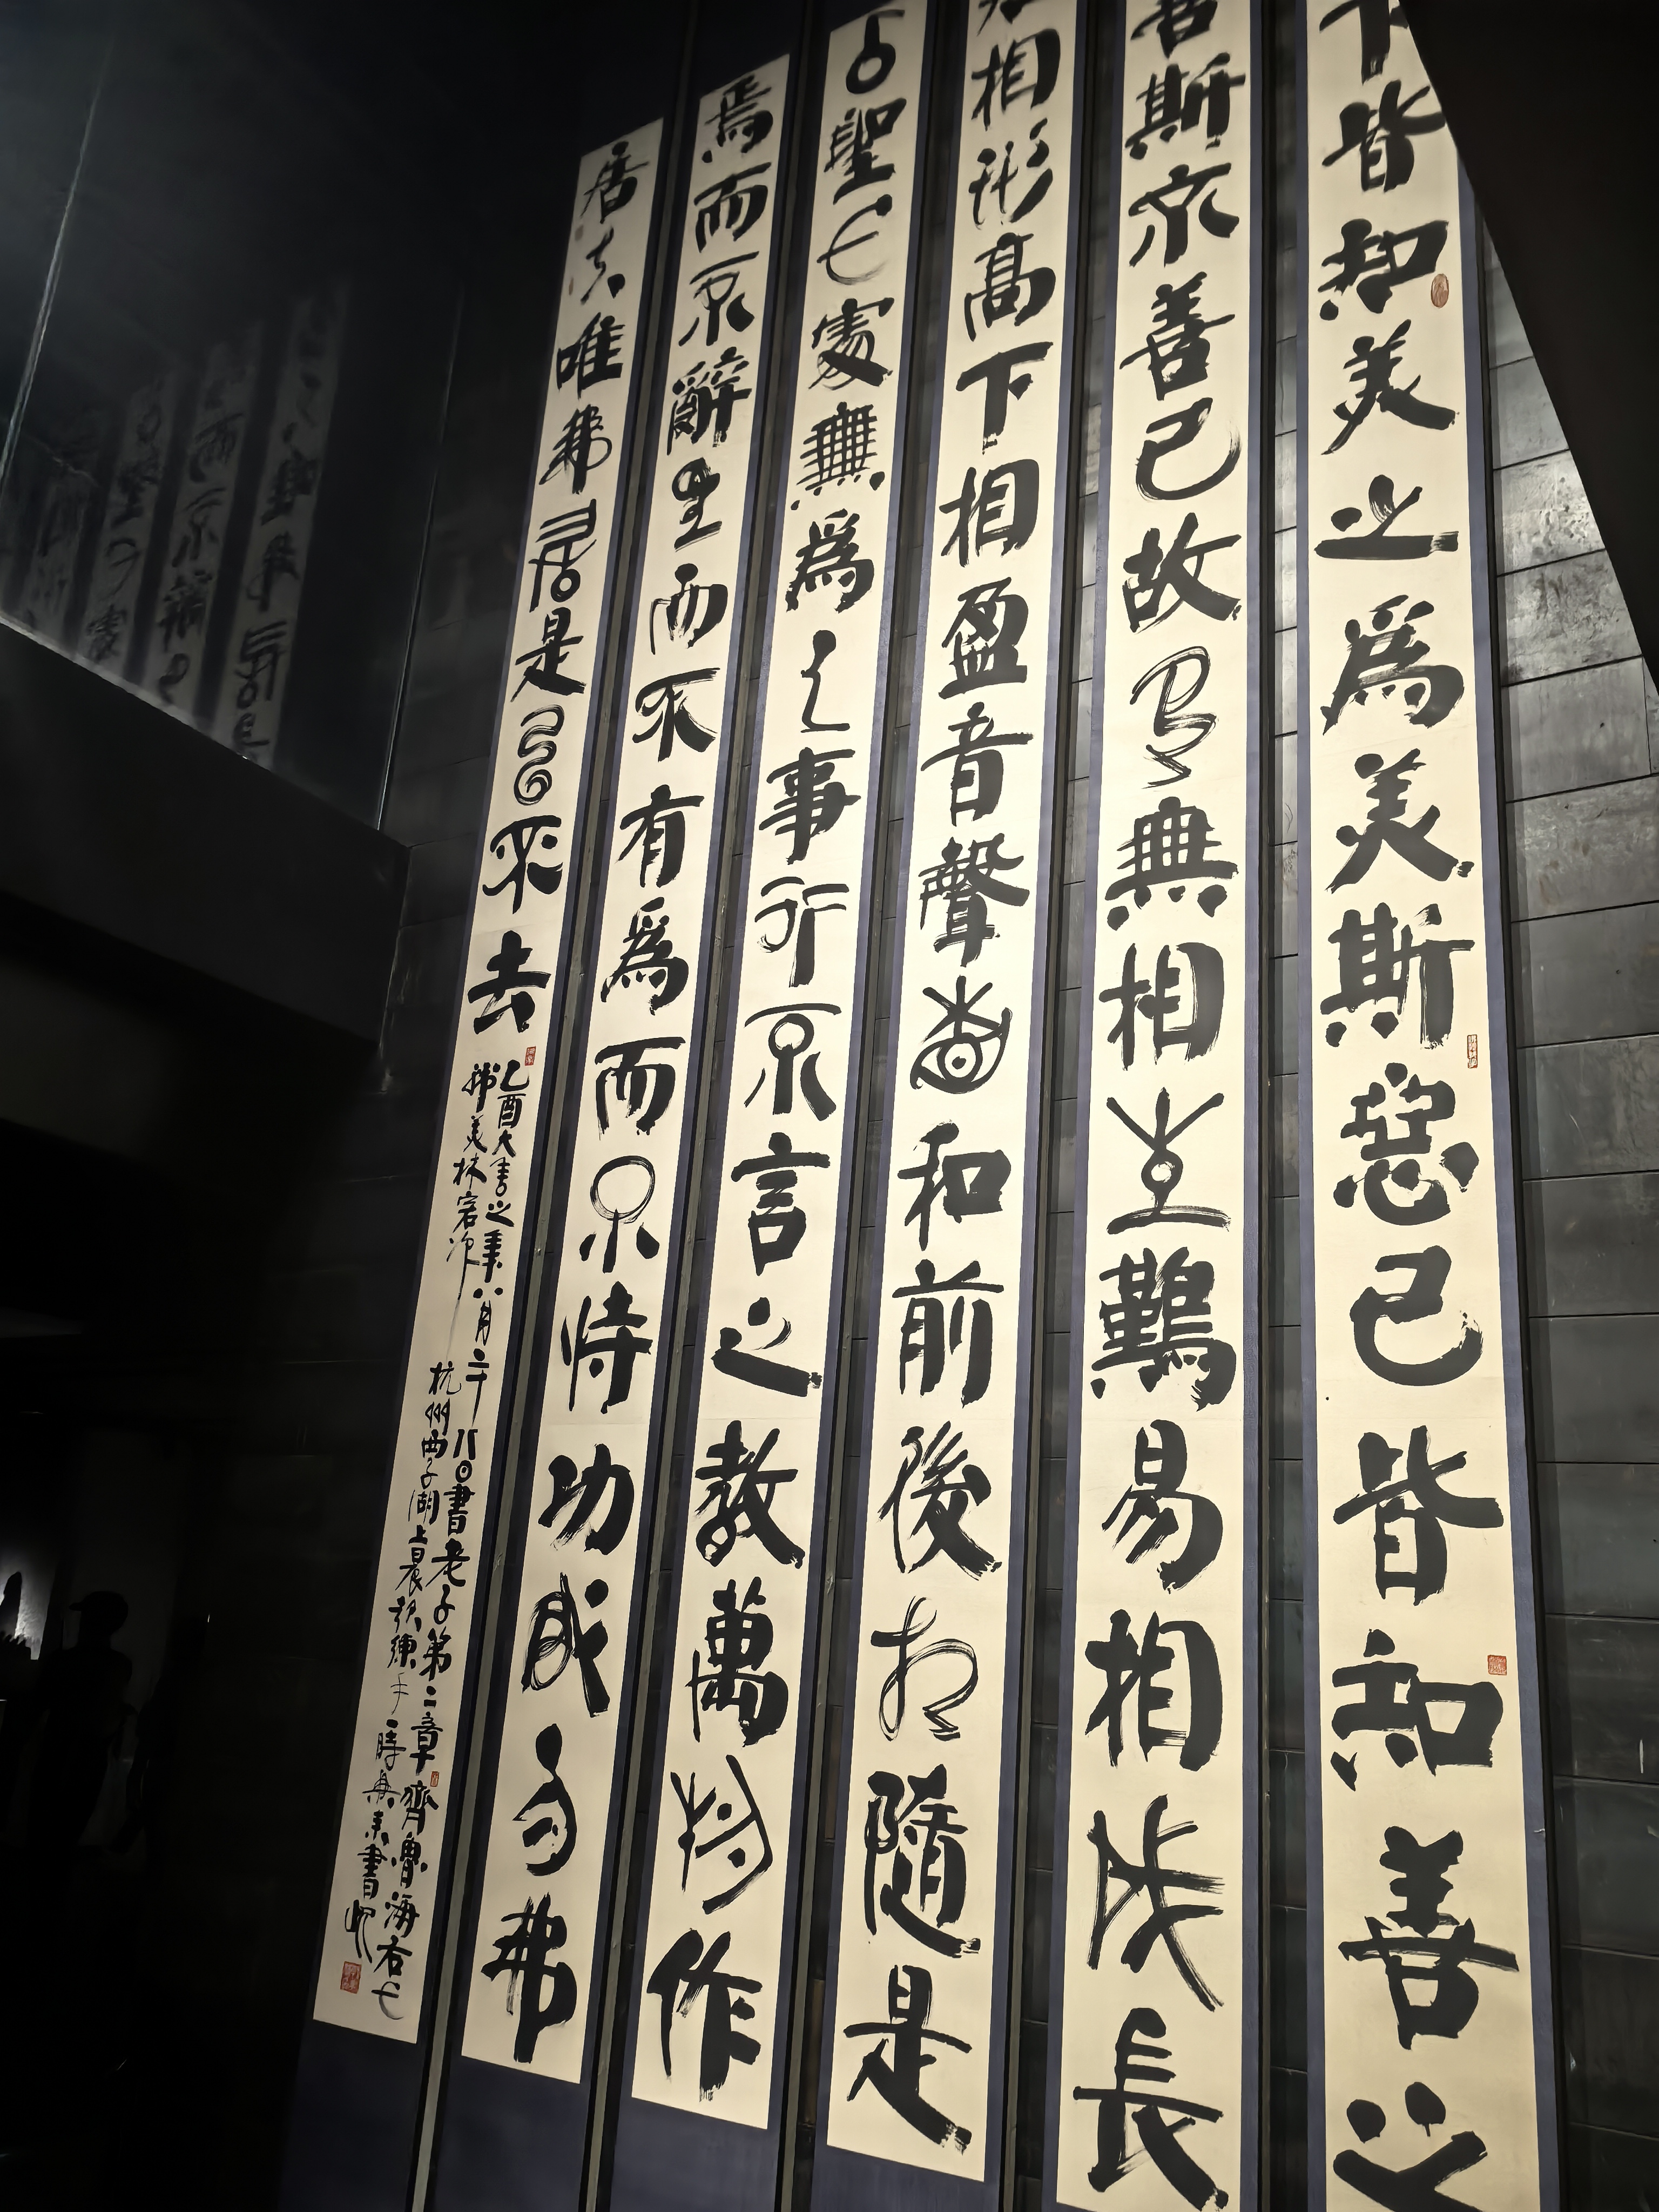 下皆知美之為美斯惡已皆知善之
善斯不善已故有無相生難易相成長
相形高下相盈音聲相和前後相隨是
以聖人處無為之事行不言之教萬物作
焉而不辭生而不有為而不恃功成而弗
居夫唯弗居是以不去
乙酉大吉之年八月二十八日書老子第二章齊魯海右人
韓美林客次杭州西子湖上晨起練手時興來書此